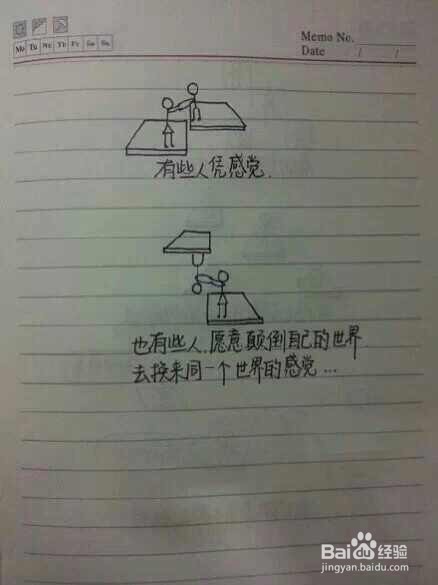 Memo No.
Mo Tu We Th Fr Sa Su
Date / /
有些人凭感觉.
也有些人.愿意颠倒自己的世界
去换来同一个世界的感觉...
Baidu经验
jingyan.baidu.com